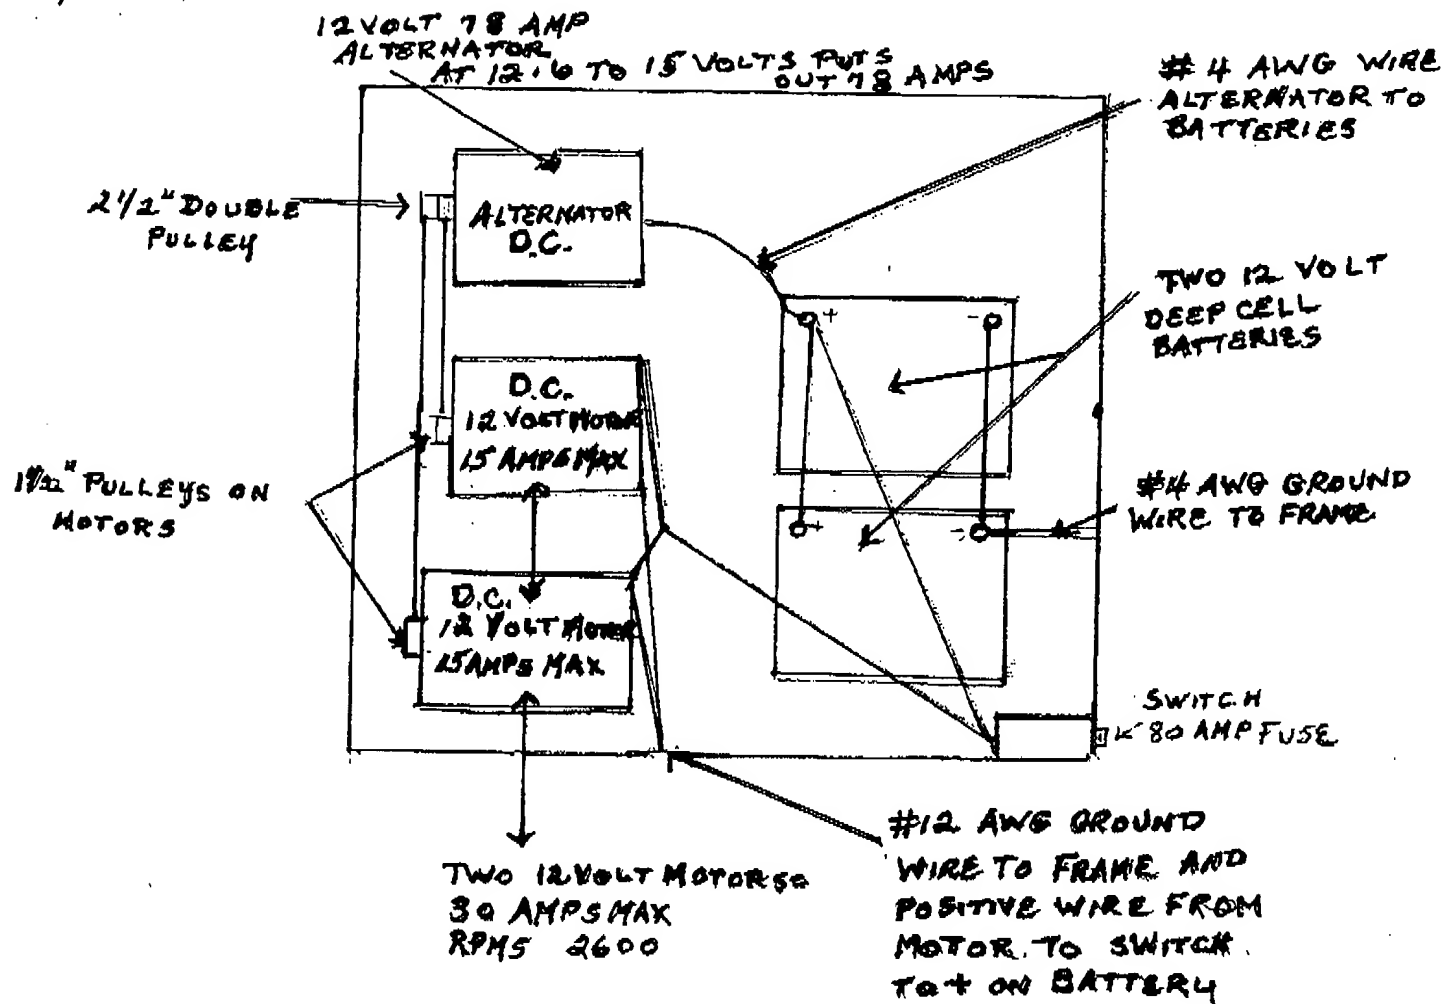 12 VOLT 78 AMP
ALTERNATOR
AT 12.6 TO 15 VOLTS PUTS
OUT 78 AMPS
# 4 AWG WIRE
ALTERNATOR TO
BATTERIES
2 1/2" DOUBLE
PULLEY
ALTERNATOR
D.C.
TWO 12 VOLT
DEEP CELL
BATTERIES
+
-
D.C.
12 VOLT MOTOR
15 AMPS MAX
PULLEYS ON
MOTORS
#4 AWG GROUND
WIRE TO FRAME
+
-
D.C.
12 VOLT MOTOR
15 AMPS MAX
SWITCH
80 AMP FUSE
TWO 12 VOLT MOTORS
30 AMPS MAX
RPMS 2600
#12 AWG GROUND
WIRE TO FRAME AND
POSITIVE WIRE FROM
MOTOR. TO SWITCH
TO + ON BATTERY